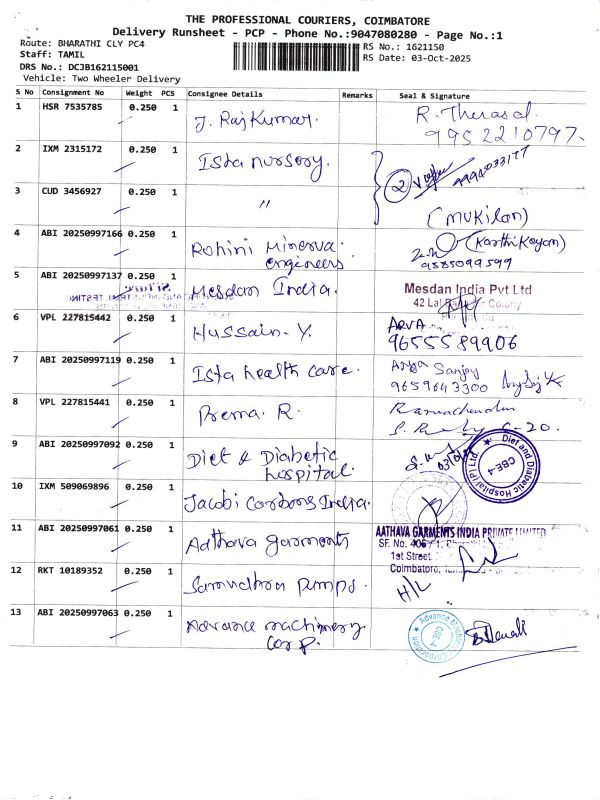 THE PROFESSIONAL COURIERS, COIMBATORE
Delivery Runsheet - PCP - Phone No.:9047080280 - Page No.:1
Route: BHARATHI CLY PC4
RS No.: 1621150
Staff: TAMIL
RS Date: 03-Oct-2025
DRS No.: DCJB162115001
Vehicle: Two Wheeler Delivery
S No Consignment No Weight PCS Consignee Details Remarks Seal & Signature
1 HSR 7535785 0.250 1 J. Rajkumar. R. Therasal
9952210797.
2 IXM 2315172 0.250 1 Ista nursory. 2
3 CUD 3456927 0.250 1 " (MUKILAN)
4 ABI 20250997166 0.250 1 Rohini Minerva engineers (Karthikeyan)
9585099599
5 ABI 20250997137 0.250 1 Mesdan India. Mesdan India Pvt Ltd
6 VPL 227815442 0.250 1 Hussain. Y. ARVA
9655589906
7 ABI 20250997119 0.250 1 Ista health care. Sanjoy
9659643300
8 VPL 227815441 0.250 1 Prema. R. Ramachandran
C-20.
9 ABI 20250997092 0.250 1 Diet & Diabetic hospital. Diet and Diabetic Hospital (P) Ltd. CBE-4
10 IXM 509069896 0.250 1 Jacobi Carbons India.
11 ABI 20250997061 0.250 1 Aathava garments AATHAVA GARMENTS INDIA PRIVATE LIMITED
SF. No. 406/1,
1st Street
Coimbatore,
12 RKT 10189352 0.250 1 Samudhra Pumps. H/L
13 ABI 20250997063 0.250 1 Advance machinery Corp. Advance Machinery Corporation CBE-4